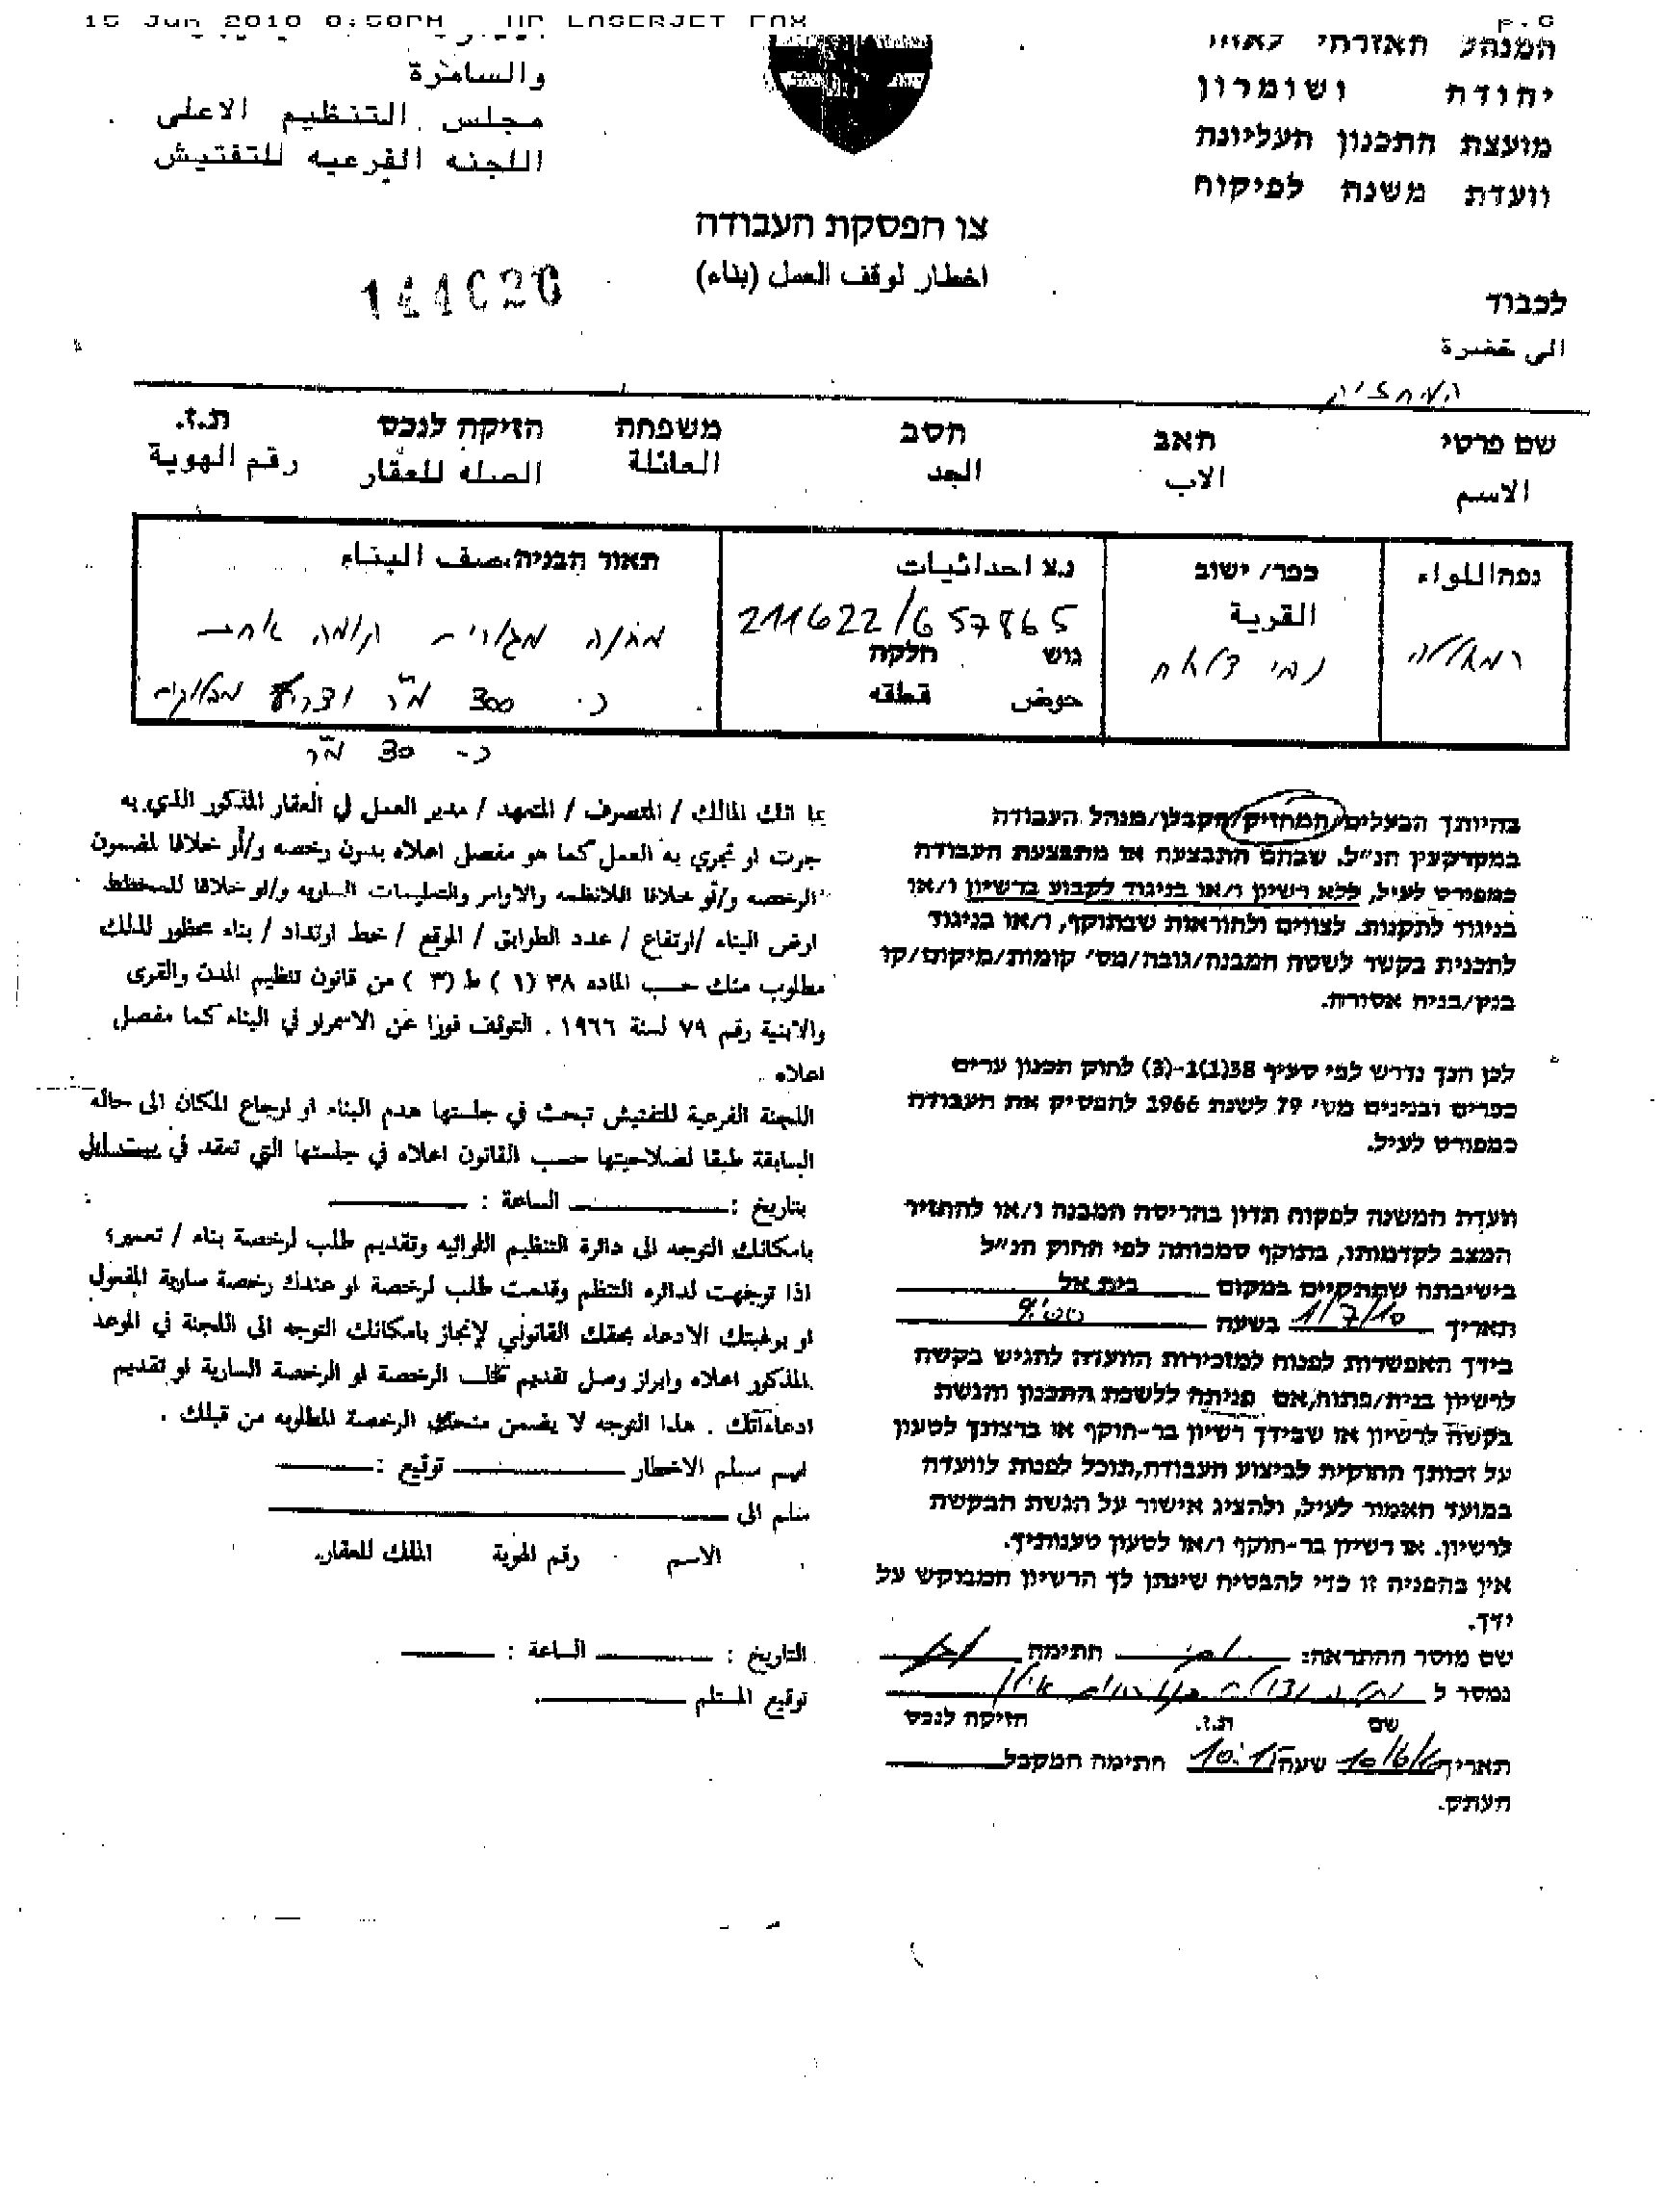 15 Jun 2010 HP LASERJET FAX
המנהל האזרחי לאזור
יהודה ושומרון
מועצת התכנון העליונה
וועדת משנה לפיקוח
والسامرة
مجلس التنظيم الاعلى
اللجنه الفرعيه للتفتيش
צו הפסקת העבודה
اخطار لوقف العمل (بناء)
לכבוד
الى حضرة
המחזיק
שם פרטי האב הסב משפחה הזיקה לנכס ת.ז.
الاسم الاب الجد العائلة الصله للعقار رقم الهوية
נפה اللواء
רמאללה
כפר/ ישוב
القرية
נבי צאלח
נ.צ احداثيات
211622/657865
גוש חלקה
حوض قطقه
תאור הבניה.صف البناء
מבנה מגורים קומה אחת
כ- 300 מ"ר
כ- 30 מ"ר
בהיותך הבעלים/המחזיק/הקבלן/מנהל העבודה
במקרקעין הנ"ל, שבהם התבצעה או מתבצעת העבודה
כמפורט לעיל, ללא רשיון ו/או בניגוד לקבוע ברשיון ו/או
בניגוד לתקנות. לצווים ולהוראות שבתוקף, ו/או בניגוד
לתכנית בקשר לשטח המבנה/גובה/מס' קומות/מיקום/קו
בנין/בניה אסורה.
לכן הנך נדרש לפי סעיף 38(1)1-(3) לחוק תכנון ערים
כפרים ובנינים מס' 79 לשנת 1966 להפסיק את העבודה
כמפורט לעיל.
וועדת המשנה לפקוח תדון בהריסת המבנה ו/או להחזיר
המצב לקדמותו, בתוקף סמכותה לפי החוק הנ"ל
בישיבתה שתתקיים במקום בית אל
תאריך 1/7/10 בשעה 9:00
בידך האפשרות לפנות למזכירות הוועדה להגיש בקשה
לרשיון בניה/פתוח,אם פנית ללשכת התכנון והגשת
בקשה לרשיון או שבידך רשיון בר-תוקף או ברצונך לטעון
על זכותך החוקית לביצוע העבודה,תוכל לפנות לוועדה
במועד האמור לעיל, ולהציג אישור על הגשת הבקשה
לרשיון. או רשיון בר-תוקף ו/או לטעון טענותיך.
אין בהפניה זו כדי להבטיח שינתן לך הרשיון המבוקש על
ידך.
שם מוסר ההתראה: חתימה
נמסר ל
שם ת.ז. הזיקה לנכס
תאריך שעה 10:15 חתימה המקבל
העתק.
بما انك المالك / المتصرف / المتعهد / مدير العمل في العقار المذكور الذي به
جرت او تجري به العمل كما هو مفصل اعلاه بدون رخصه و/أو خلافا لمضمون
الرخصه و/أو خلافا للانظمه والاوامر والتعليمات الساريه و/او خلافا للمخطط
ارض البناء /ارتفاع / عدد الطوابق / الموقع / خط ارتداد / بناء محظور لذلك
مطلوب منك حسب الماده ٣٨ (١ ) ط (٣ ) من قانون تنظيم المدن والقرى
والابنية رقم ٧٩ لسنة ١٩٦٦ . التوقف فورا عن الاسمرار في البناء كما مفصل
اعلاه .
اللجنة الفرعية للتفتيش تبحث في جلستها هدم البناء او ارجاع المكان الى حاله
السابقة طبقا لصلاحيتها حسب القانون اعلاه في جلستها التي تعقد في بيت ايل
بتاريخ : الساعة :
بامكانك التوجه الى دائرة التنظيم اللوائيه وتقديم طلب لرخصة بناء / تعمير؛
اذا توجهت لدائره التنظم وقدمت طلب لرخصة او عندك رخصة سارية المفعول
او برغبتك الادعاء بحقك القانوني لإنجاز بامكانك التوجه الى اللجنة في الموعد
المذكور اعلاه وابراز وصل تقديم طلب الرخصة او الرخصة السارية او تقديم
ادعاءاتك . هذا التوجه لا يضمن منحك الرخصة المطلوبه من قبلك .
اسم مسلم الاخطار توقيع :
سلم الى
الاسم رقم الهوية المالك للعقار.
التاريخ : الساعة :
توقيع المستلم